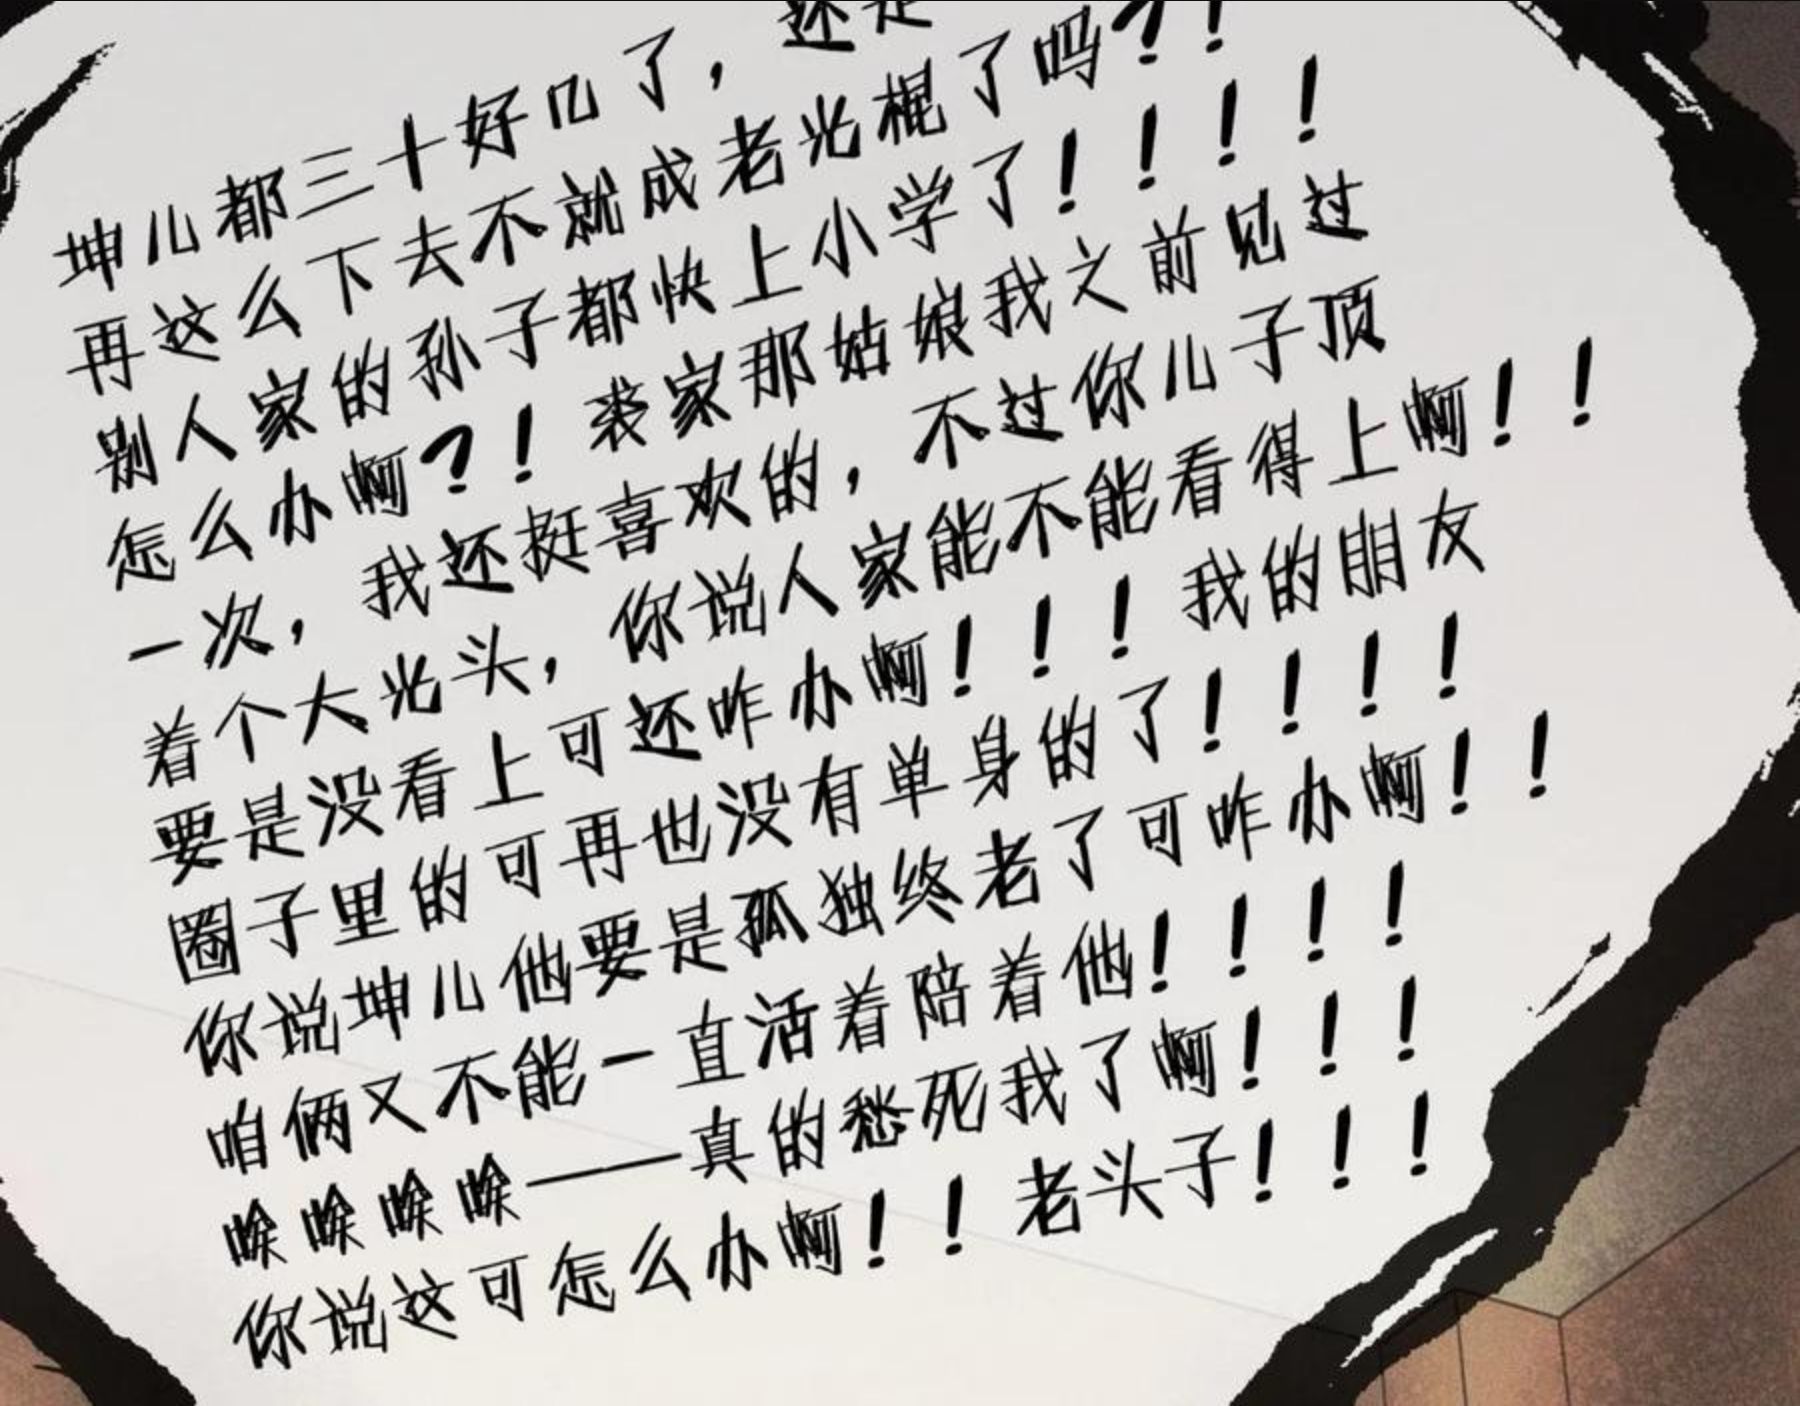 坤儿都三十好几了，还是
再这么下去不就成老光棍了吗？！
别人家的孙子都快上小学了！！！！
怎么办啊？！裘家那姑娘我之前见过
一次，我还挺喜欢的，不过你儿子顶
着个大光头，你说人家能不能看得上啊！！
要是没看上可还咋办啊！！！我的朋友
圈子里的可再也没有单身的了！！！！
你说坤儿他要是孤独终老了可咋办啊！！
咱俩又不能一直活着陪着他！！！！
唉唉唉唉——真的愁死我了啊！！！
你说这可怎么办啊！！老头子！！！